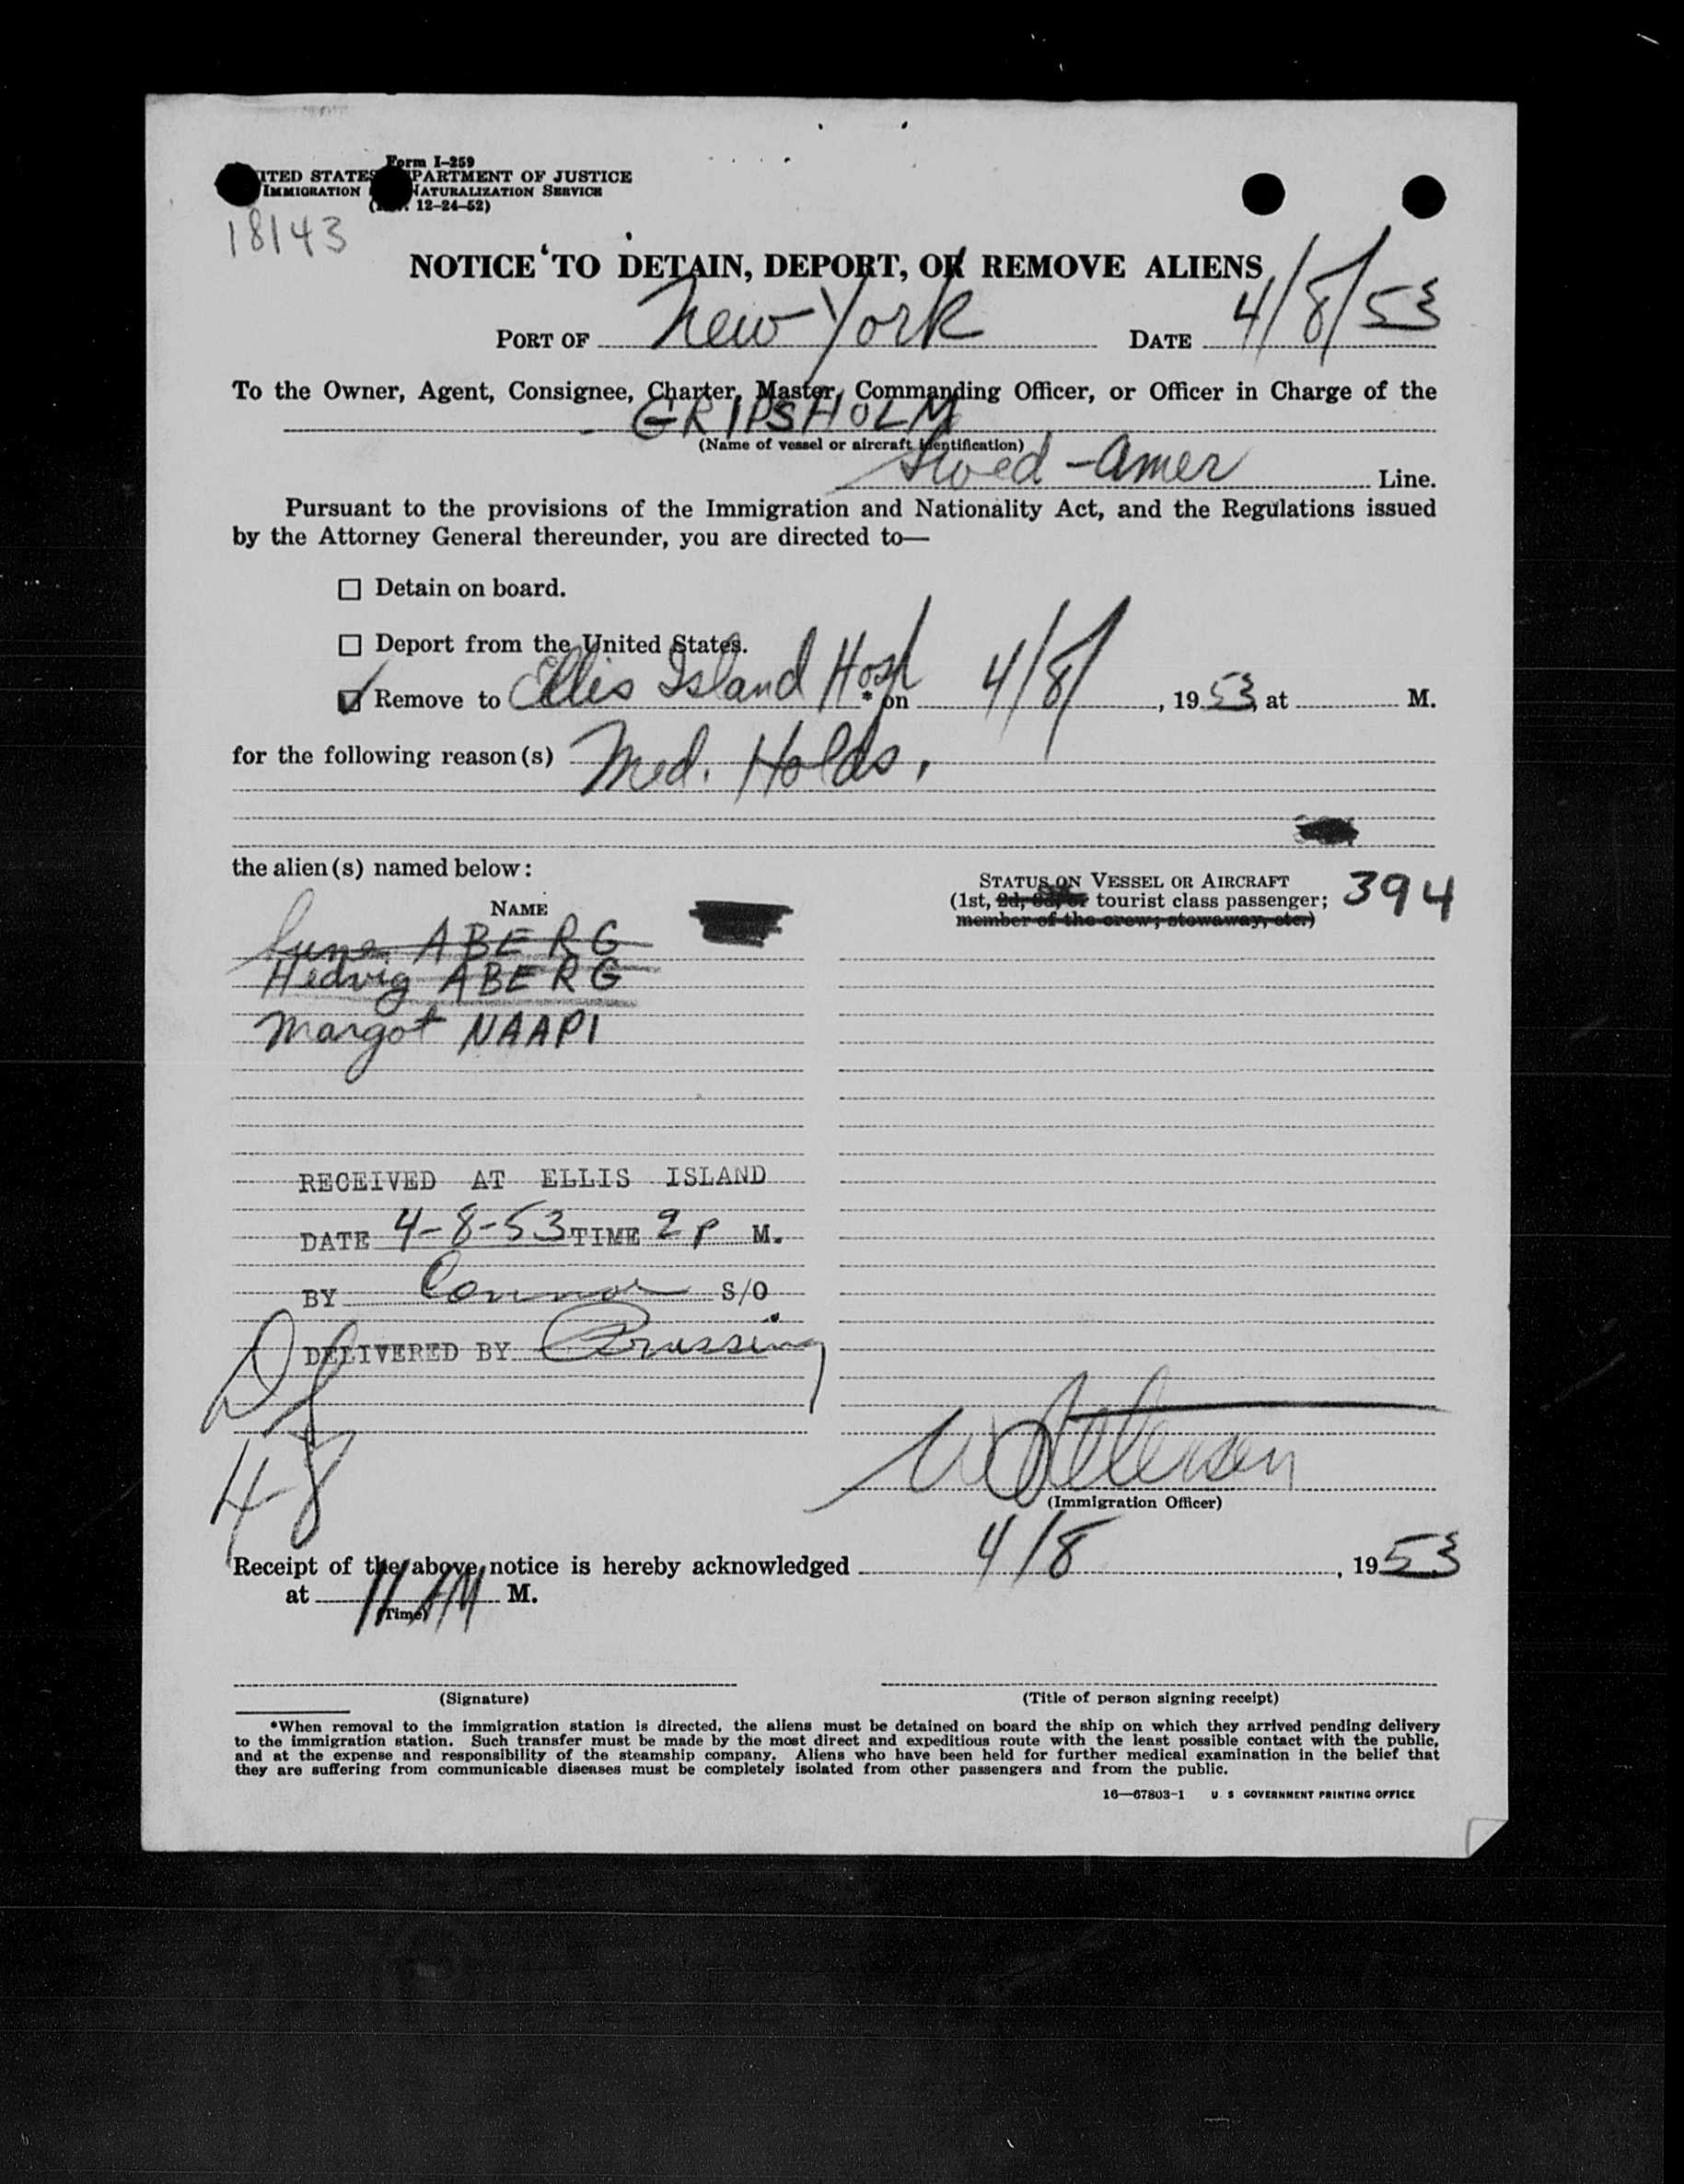 Form I-259
ITED STATES PARTMENT OF JUSTICE
IMMIGRATION NATURALIZATION SERVICE
( . 12-24-52)
18143
NOTICE TO DETAIN, DEPORT, OR REMOVE ALIENS
PORT OF New York DATE 4/8/53
To the Owner, Agent, Consignee, Charter, Master, Commanding Officer, or Officer in Charge of the
GRIPSHOLM
(Name of vessel or aircraft identification)
Swed-Amer Line.
Pursuant to the provisions of the Immigration and Nationality Act, and the Regulations issued
by the Attorney General thereunder, you are directed to—
☐ Detain on board.
☐ Deport from the United States.
☑ Remove to Ellis Island Hosp * on 4/8/, 1953, at M.
for the following reason(s) Med. Holds.
the alien(s) named below:
STATUS ON VESSEL OR AIRCRAFT 394
(1st, 2d, 3d, or tourist class passenger;
member of the crew; stowaway, etc.)
NAME
ABERG
Hedvig ABERG
Margot NAAPI
RECEIVED AT ELLIS ISLAND
DATE 4-8-53 TIME 2 P M.
BY Connor S/O
DELIVERED BY
4 8
(Immigration Officer)
Receipt of the above notice is hereby acknowledged 4/8, 1953
at 11 AM M.
(Time)
(Signature)
(Title of person signing receipt)
*When removal to the immigration station is directed, the aliens must be detained on board the ship on which they arrived pending delivery
to the immigration station. Such transfer must be made by the most direct and expeditious route with the least possible contact with the public,
and at the expense and responsibility of the steamship company. Aliens who have been held for further medical examination in the belief that
they are suffering from communicable diseases must be completely isolated from other passengers and from the public.
16—67803-1 U S GOVERNMENT PRINTING OFFICE